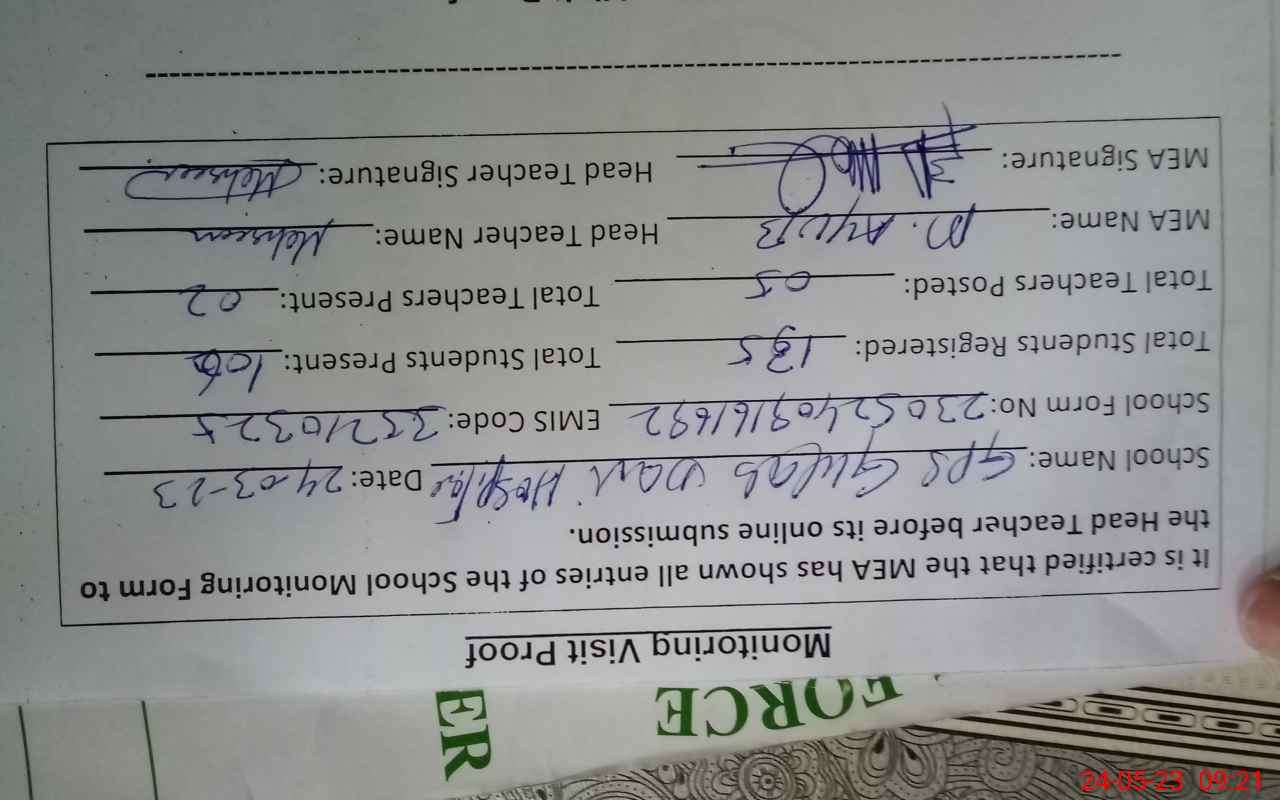 FORCE
ER
Monitoring Visit Proof
It is certified that the MEA has shown all entries of the School Monitoring Form to
the Head Teacher before its online submission.
School Name: GPS Gulab Devi Hospital Date: 24-03-23
School Form No: 23052409161692 EMIS Code: 35210325
Total Students Registered: 135 Total Students Present: 106
Total Teachers Posted: 05 Total Teachers Present: 02
MEA Name: M. AYUB Head Teacher Name: Mehreen
MEA Signature: Head Teacher Signature: Mehreen
24-05-23 09:21